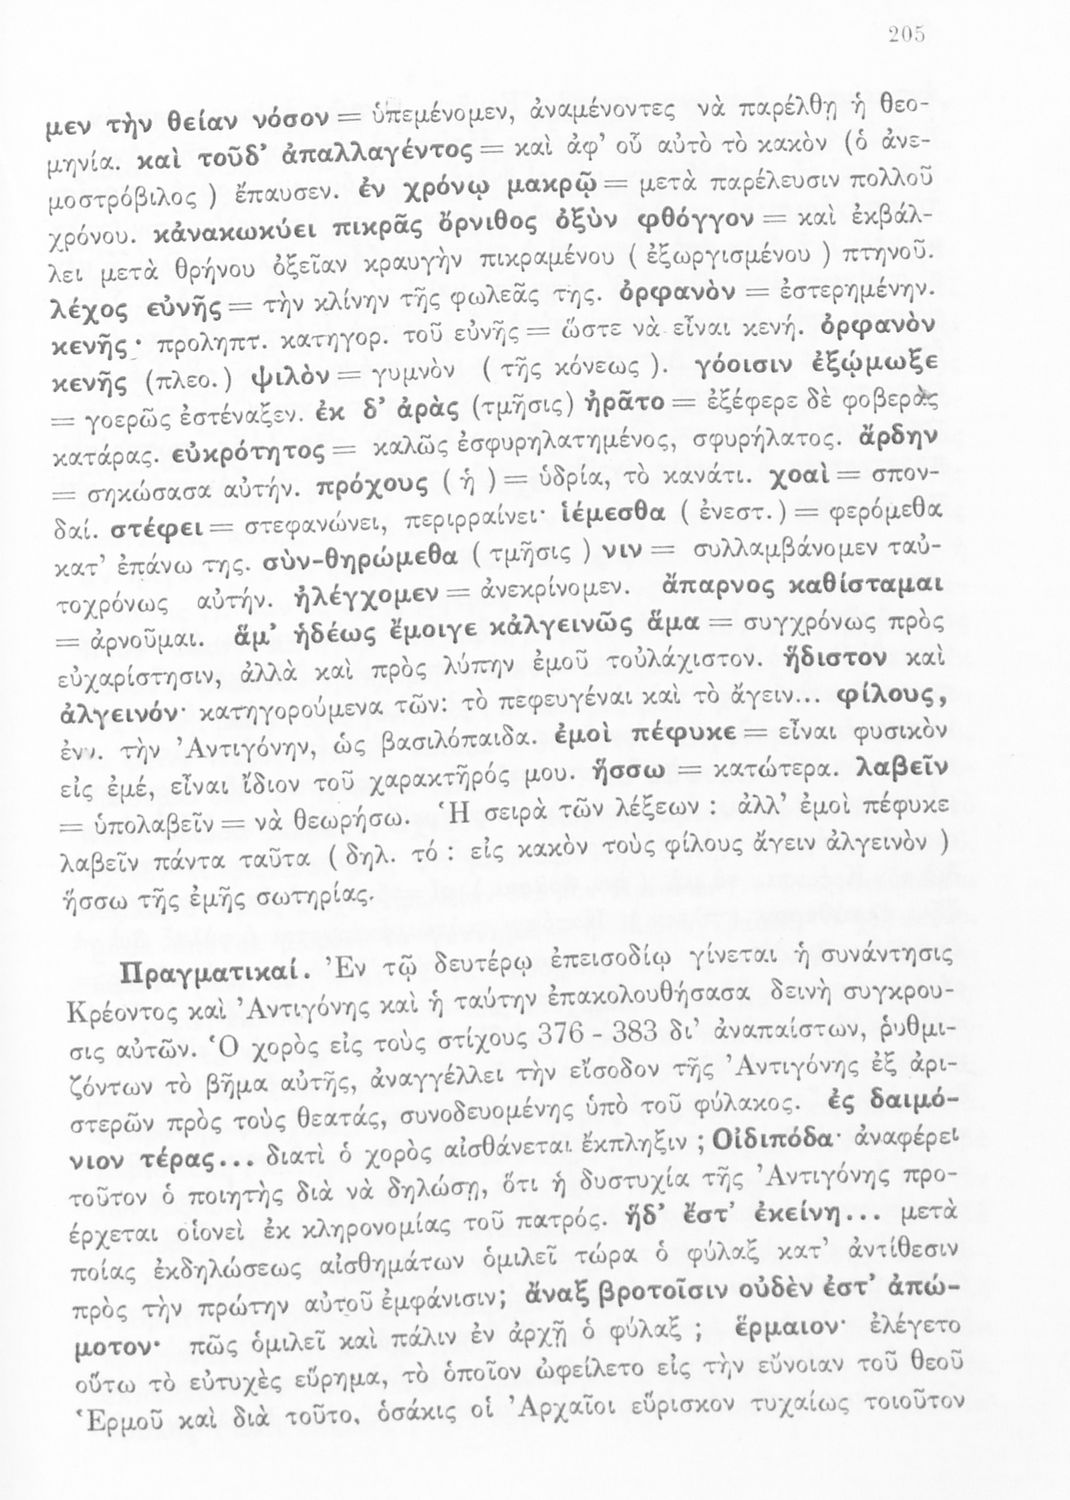 205
μεν τὴν θείαν νόσον = ὑπεμένομεν, ἀναμένοντες νὰ παρέλθῃ ἡ θεο-
μηνία. καὶ τοῦδ’ ἀπαλλαγέντος = καὶ ἀφ’ οὗ αὐτὸ τὸ κακὸν (ὁ ἀνε-
μοστρόβιλος ) ἔπαυσεν. ἐν χρόνῳ μακρῷ = μετὰ παρέλευσιν πολλοῦ
χρόνου. κἀνακωκύει πικρᾶς ὄρνιθος ὀξὺν φθόγγον = καὶ ἐκβάλ-
λει μετὰ θρήνου ὀξεῖαν κραυγὴν πικραμένου ( ἐξωργισμένου ) πτηνοῦ.
λέχος εὐνῆς = τὴν κλίνην τῆς φωλεᾶς της. ὀρφανὸν = ἐστερημένην.
κενῆς· προληπτ. κατηγορ. τοῦ εὐνῆς = ὥστε νὰ εἶναι κενή. ὀρφανὸν
κενῆς (πλεο.) ψιλὸν = γυμνὸν ( τῆς κόνεως ). γόοισιν ἐξῴμωξε
= γοερῶς ἐστέναξεν. ἐκ δ’ ἀρὰς (τμῆσις) ἠρᾶτο = ἐξέφερε δὲ φοβερὰς
κατάρας. εὐκρότητος = καλῶς ἐσφυρηλατημένος, σφυρήλατος. ἄρδην
= σηκώσασα αὐτήν. πρόχους ( ἡ ) = ὑδρία, τὸ κανάτι. χοαὶ = σπον-
δαί. στέφει = στεφανώνει, περιρραίνει· ἱέμεσθα ( ἐνεστ. ) = φερόμεθα
κατ’ ἐπάνω της. σὺν-θηρώμεθα ( τμῆσις ) νιν = συλλαμβάνομεν ταὐ-
τοχρόνως αὐτήν. ἠλέγχομεν = ἀνεκρίνομεν. ἄπαρνος καθίσταμαι
= ἀρνοῦμαι. ἅμ’ ἡδέως ἔμοιγε κἀλγεινῶς ἅμα = συγχρόνως πρὸς
εὐχαρίστησιν, ἀλλὰ καὶ πρὸς λύπην ἐμοῦ τοὐλάχιστον. ἥδιστον καὶ
ἀλγεινόν· κατηγορούμενα τῶν: τὸ πεφευγέναι καὶ τὸ ἄγειν... φίλους,
ἐνν. τὴν ’Αντιγόνην, ὡς βασιλόπαιδα. ἐμοὶ πέφυκε = εἶναι φυσικὸν
εἰς ἐμέ, εἶναι ἴδιον τοῦ χαρακτῆρός μου. ἥσσω = κατώτερα. λαβεῖν
= ὑπολαβεῖν = νὰ θεωρήσω. ‘Η σειρὰ τῶν λέξεων : ἀλλ’ ἐμοὶ πέφυκε
λαβεῖν πάντα ταῦτα ( δηλ. τό : εἰς κακὸν τοὺς φίλους ἄγειν ἀλγεινὸν )
ἥσσω τῆς ἐμῆς σωτηρίας.
Πραγματικαί. ’Εν τῷ δευτέρῳ ἐπεισοδίῳ γίνεται ἡ συνάντησις
Κρέοντος καὶ ’Αντιγόνης καὶ ἡ ταύτην ἐπακολουθήσασα δεινὴ συγκρου-
σις αὐτῶν. ‘Ο χορὸς εἰς τοὺς στίχους 376 - 383 δι’ ἀναπαίστων, ρυθμι-
ζόντων τὸ βῆμα αὐτῆς, ἀναγγέλλει τὴν εἴσοδον τῆς ’Αντιγόνης ἐξ ἀρι-
στερῶν πρὸς τοὺς θεατάς, συνοδευομένης ὑπὸ τοῦ φύλακος. ἐς δαιμό-
νιον τέρας... διατὶ ὁ χορὸς αἰσθάνεται ἔκπληξιν ; Οἰδιπόδα· ἀναφέρει
τοῦτον ὁ ποιητὴς διὰ νὰ δηλώσῃ, ὅτι ἡ δυστυχία τῆς ’Αντιγόνης προ-
έρχεται οἱονεὶ ἐκ κληρονομίας τοῦ πατρός. ἥδ’ ἔστ’ ἐκείνη... μετὰ
ποίας ἐκδηλώσεως αἰσθημάτων ὁμιλεῖ τώρα ὁ φύλαξ κατ’ ἀντίθεσιν
πρὸς τὴν πρώτην αὐτοῦ ἐμφάνισιν; ἄναξ βροτοῖσιν οὐδὲν ἐστ’ ἀπώ-
μοτον· πῶς ὁμιλεῖ καὶ πάλιν ἐν ἀρχῇ ὁ φύλαξ ; ἕρμαιον· ἐλέγετο
οὕτω τὸ εὐτυχὲς εὕρημα, τὸ ὁποῖον ὠφείλετο εἰς τὴν εὔνοιαν τοῦ θεοῦ
‘Ερμοῦ καὶ διὰ τοῦτο, ὁσάκις οἱ ’Αρχαῖοι εὕρισκον τυχαίως τοιοῦτον